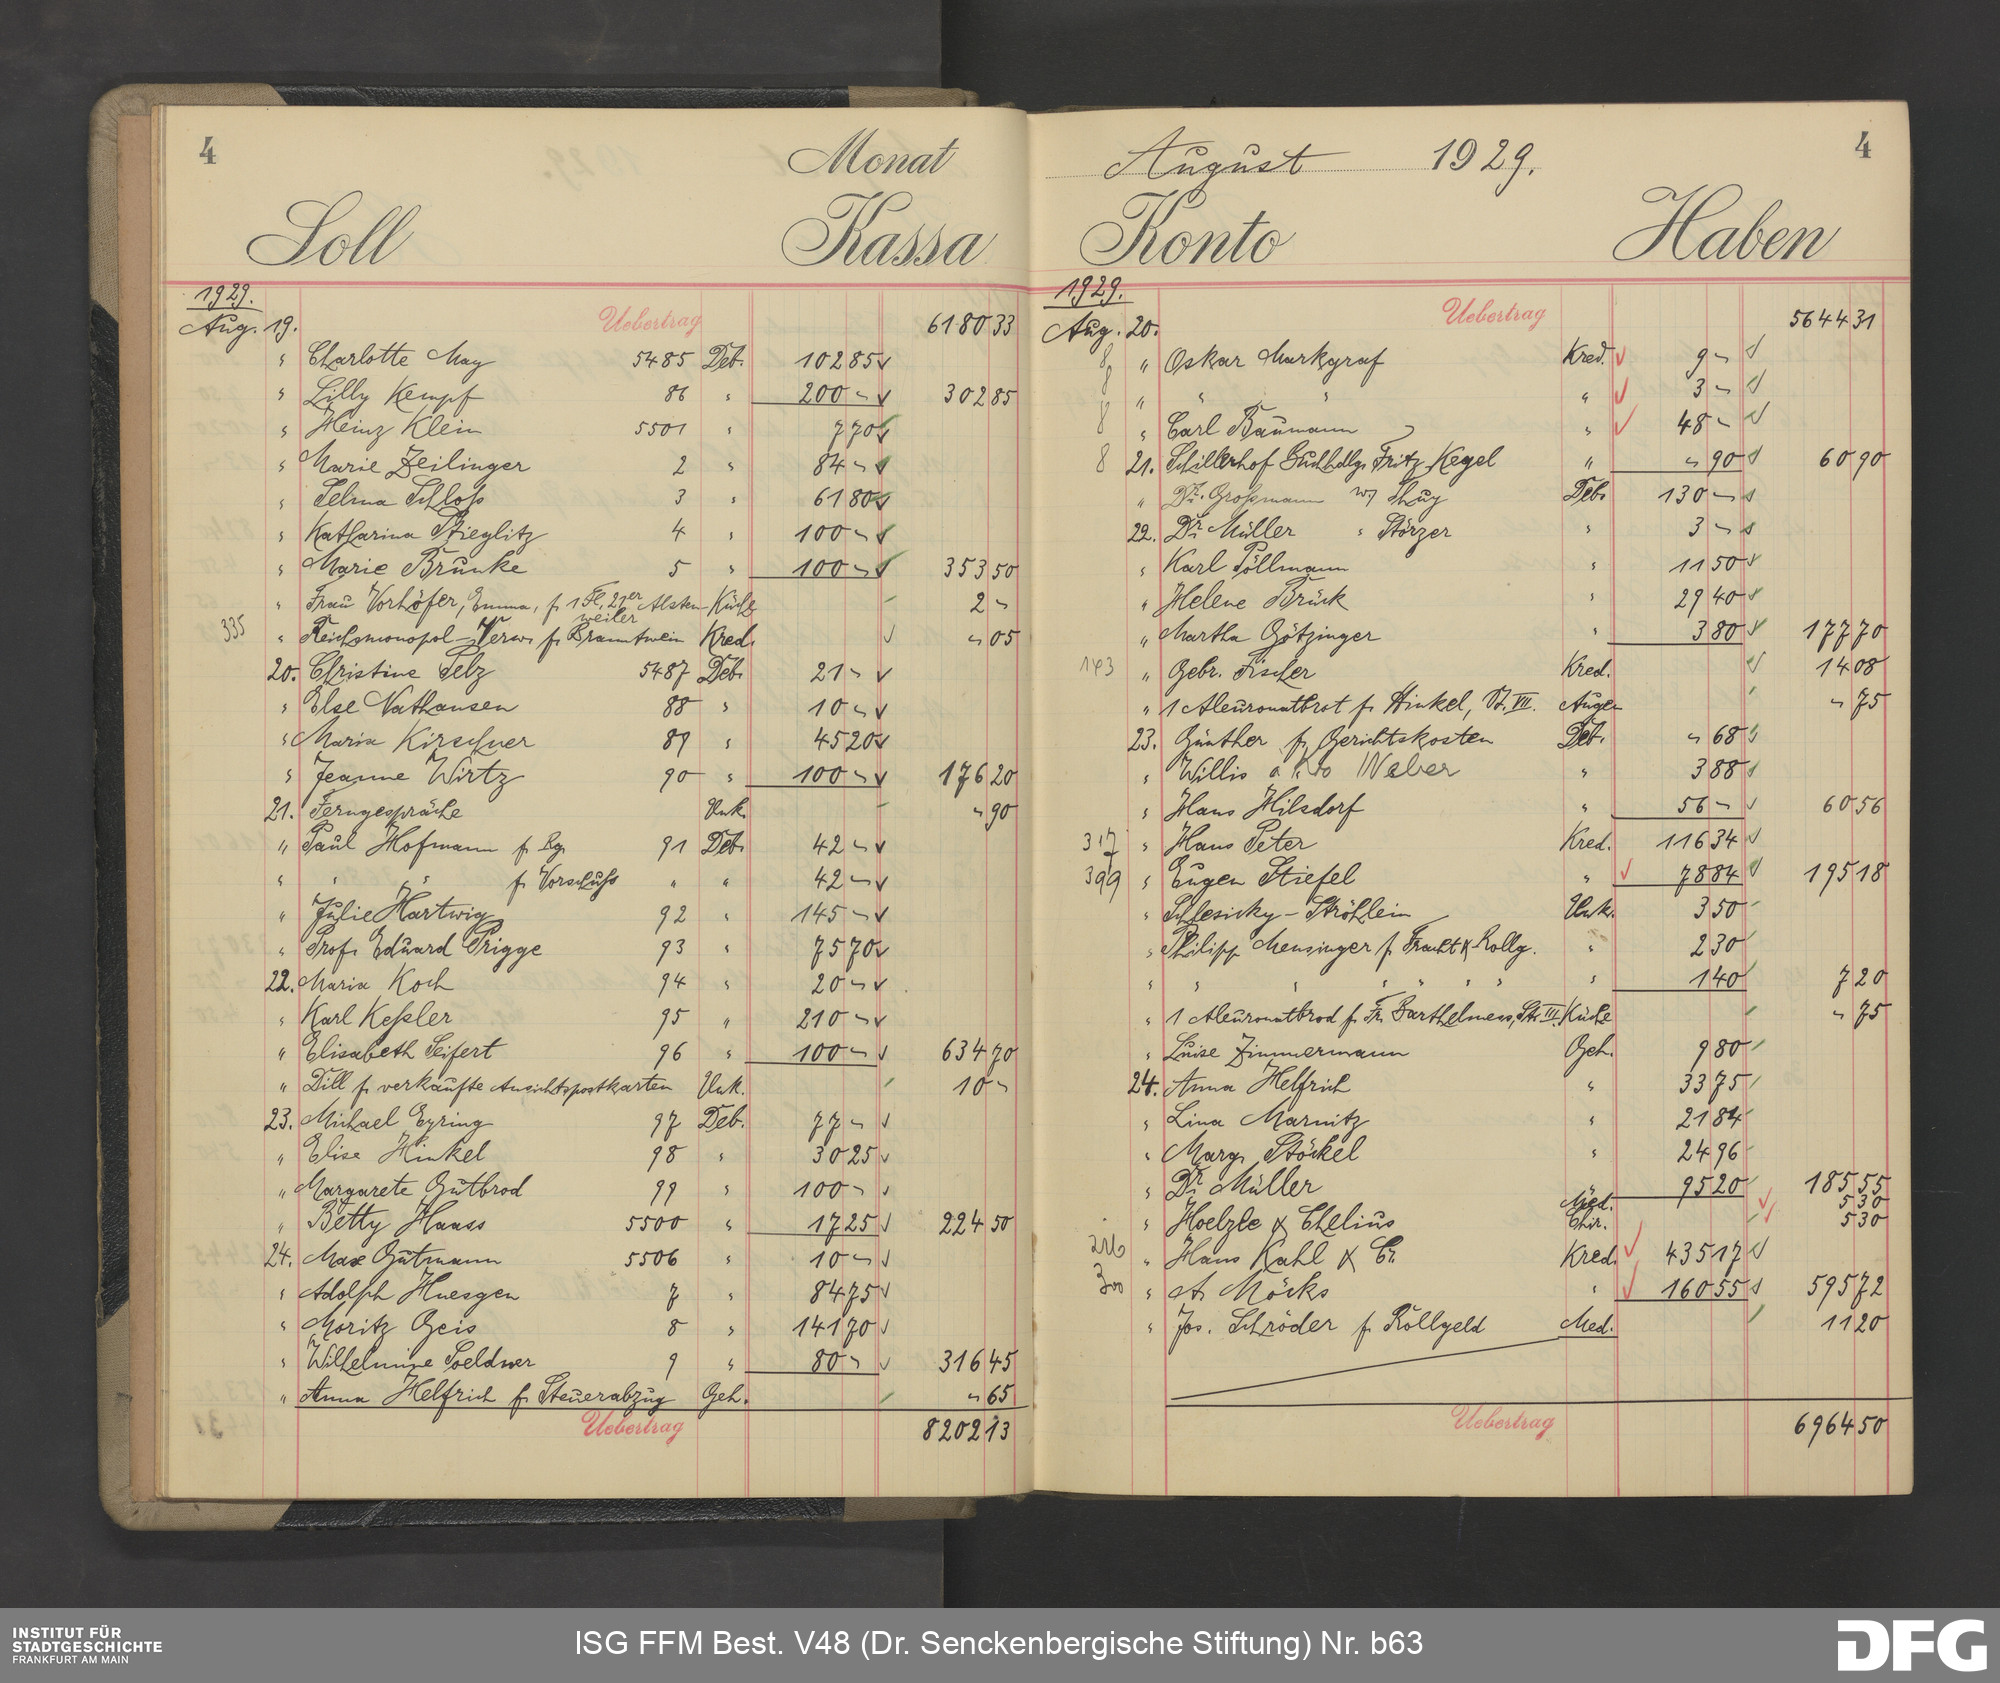 4
Monat
Soll Kassa
1929.
Uebertrag
Aug. 19. 6180 33
" Charlotte May 5485 Deb. 102 85
" Lilly Kempf 86 " 200 - 302 85
" Heinz Klein 5501 " 7 70
" Marie Zeilinger 2 " 84 -
" Selma Schloß 3 " 61 80
" Katharina Stieglitz 4 " 100 -
" Marie Brunke 5 " 100 - 353 50
" Frau Vorhöfer, Emma, f. 1 Fl. 21er Alster- Küche 2 -
weiler
335 " Reichsmonopol-Verw. f. Branntwein Kred. " 05
20. Christine Selz 5487 Deb. 21 -
" Else Nathansen 88 " 10 -
" Maria Kirschner 89 " 45 20
" Jeanne Wirtz 90 " 100 - 176 20
21. Ferngespräche Unk. " 90
" Paul Hofmann f. Rg. 91 Deb. 42 -
" " " f. Vorschuß " " 42 -
" Julie Hartwig 92 " 145 -
" Prof. Eduard Prigge 93 " 75 70
22. Maria Koch 94 " 20 -
" Karl Keßler 95 " 210 -
" Elisabeth Seifert 96 " 100 - 634 70
" Dill f. verkaufte Ansichtspostkarten Unk. 10 -
23. Michael Eyring 97 Deb. 77 -
" Elise Hinkel 98 " 30 25
" Margarete Gutbrod 99 " 100 -
" Betty Haass 5500 " 17 25 224 50
24. Max Gutmann 5506 " 10 -
" Adolph Huesgen 7 " 84 75
" Moritz Geis 8 " 141 70
" Wilhelmine Soeldner 9 " 80 - 316 45
" Anna Helfrich f. Steuerabzug Geh. " 65
Uebertrag 8202 13
August 1929.
4
Konto Haben
1929.
Uebertrag
Aug. 20. 5644 31
8 " Oskar Markgraf Kred. 9 -
8 " " " " 3 -
8 " Carl Baumann " 48 -
8 21. Schillerhof Buchhdlg. Fritz Kegel " " 90 60 90
" Dr. Großmann w/ Deb. 130 -
22. Dr. Müller " Störzer " 3 -
" Karl Pöllmann " 11 50
" Helene Brück " 29 40
" Martha Götzinger " 3 80 177 70
143 " Gebr. Fischer Kred. 14 08
" 1 Aleuronatbrot f. Hinkel, St. VII. Augen " 75
23. Günther f. Gerichtskosten Deb. " 68
" Willis a. Kto Weber " 3 88
" Hans Hilsdorf " 56 - 60 56
317 " Hans Peter Kred. 116 34
399 " Eugen Stiefel " 78 84 195 18
" Schlesicky-Ströhlein Unk. 3 50
" Philipp Mensinger f. Fracht & Rollg. " 2 30
" " " " " " " 1 40 7 20
" 1 Aleuronatbrod f. Fr. Barthelmess, St. III. Küche " 75
" Luise Zimmermann Geh. 9 80
24. Anna Helfrich " 33 75
" Lina Marnitz " 21 84
" Marg. Stöckel " 24 96
" Dr. Müller " 95 20 185 55
Med. 5 30
" Hoelzle & Chelius Chir. 5 30
216 " Hans Kahl & Co. Kred. 435 17
300 " A. Möcks " 160 55 595 72
" Jos. Schröder f. Rollgeld Med. 11 20
Uebertrag 6964 50
INSTITUT FÜR
STADTGESCHICHTE
FRANKFURT AM MAIN
ISG FFM Best. V48 (Dr. Senckenbergische Stiftung) Nr. b63
DFG